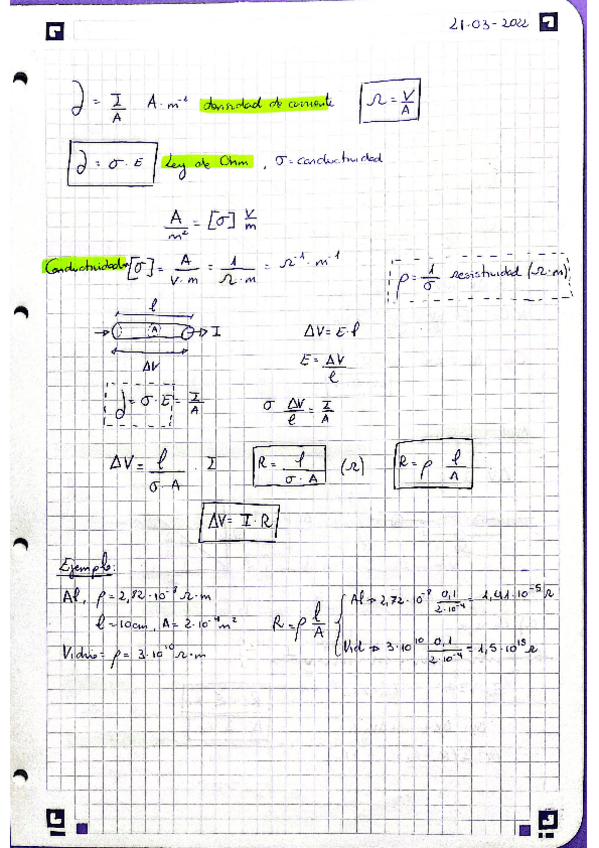 21-03-2022
J = I/A A·m⁻² densidad de corriente Ω = V/A
J = σ · E Ley de Ohm, σ = conductividad
A/m² = [σ] V/m
Conductividad [σ] = A/V·m = 1/Ω·m = Ω⁻¹·m⁻¹
ρ = 1/σ resistividad (Ω·m)
l
A → I
ΔV
ΔV = E·l
E = ΔV/l
J = σ·E = I/A
σ ΔV/l = I/A
ΔV = l/σ·A · I R = l/σ·A (Ω) R = ρ l/A
ΔV = I·R
Ejemplo:
Al, ρ = 2,82·10⁻⁸ Ω·m
l = 10cm, A = 2·10⁻⁴ m²
Vidrio = ρ = 3·10¹⁰ Ω·m
R = ρ l/A
Al → 2,72·10⁻⁸ 0,1/2·10⁻⁴ = 1,41·10⁻⁵ Ω
Vid → 3·10¹⁰ 0,1/2·10⁻⁴ = 1,5·10¹³ Ω